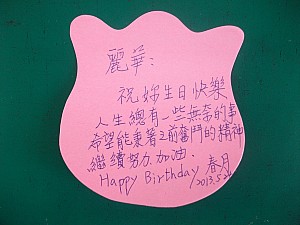 麗華：
祝妳生日快樂
人生總有一些無奈的事
希望能秉著之前奮鬥的精神
繼續努力.加油.
Happy Birthday 春月
2013.5.24